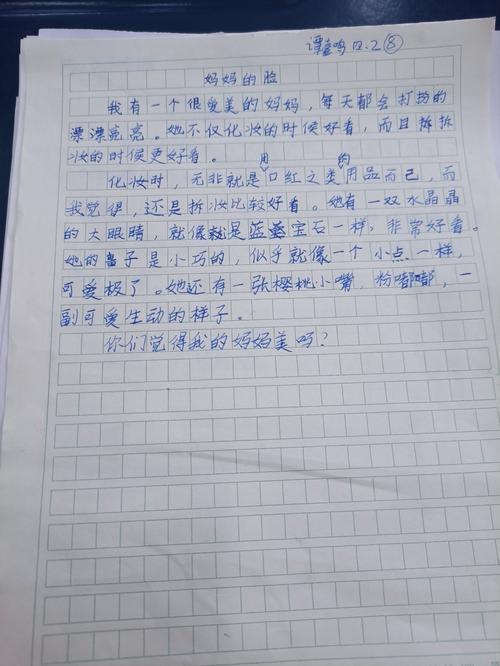 谭喜鸣 四.2 ⑧
妈妈的脸
我有一个很爱美的妈妈，每天都会打扮的
漂漂亮亮。她不仅化妆的时候好看，而且拆
妆的时候更好看。
用 的
化妆时，无非就是口红之类用品而已，而
我觉得，还是拆妆比较好看。她有一双水晶晶
的大眼睛，就像是蓝宝石一样，非常好看。
她的鼻子是小巧的，似乎就像一个小点一样，
可爱极了。她还有一张樱桃小嘴，粉嘟嘟，一
副可爱生动的样子。
你们觉得我的妈妈美吗？